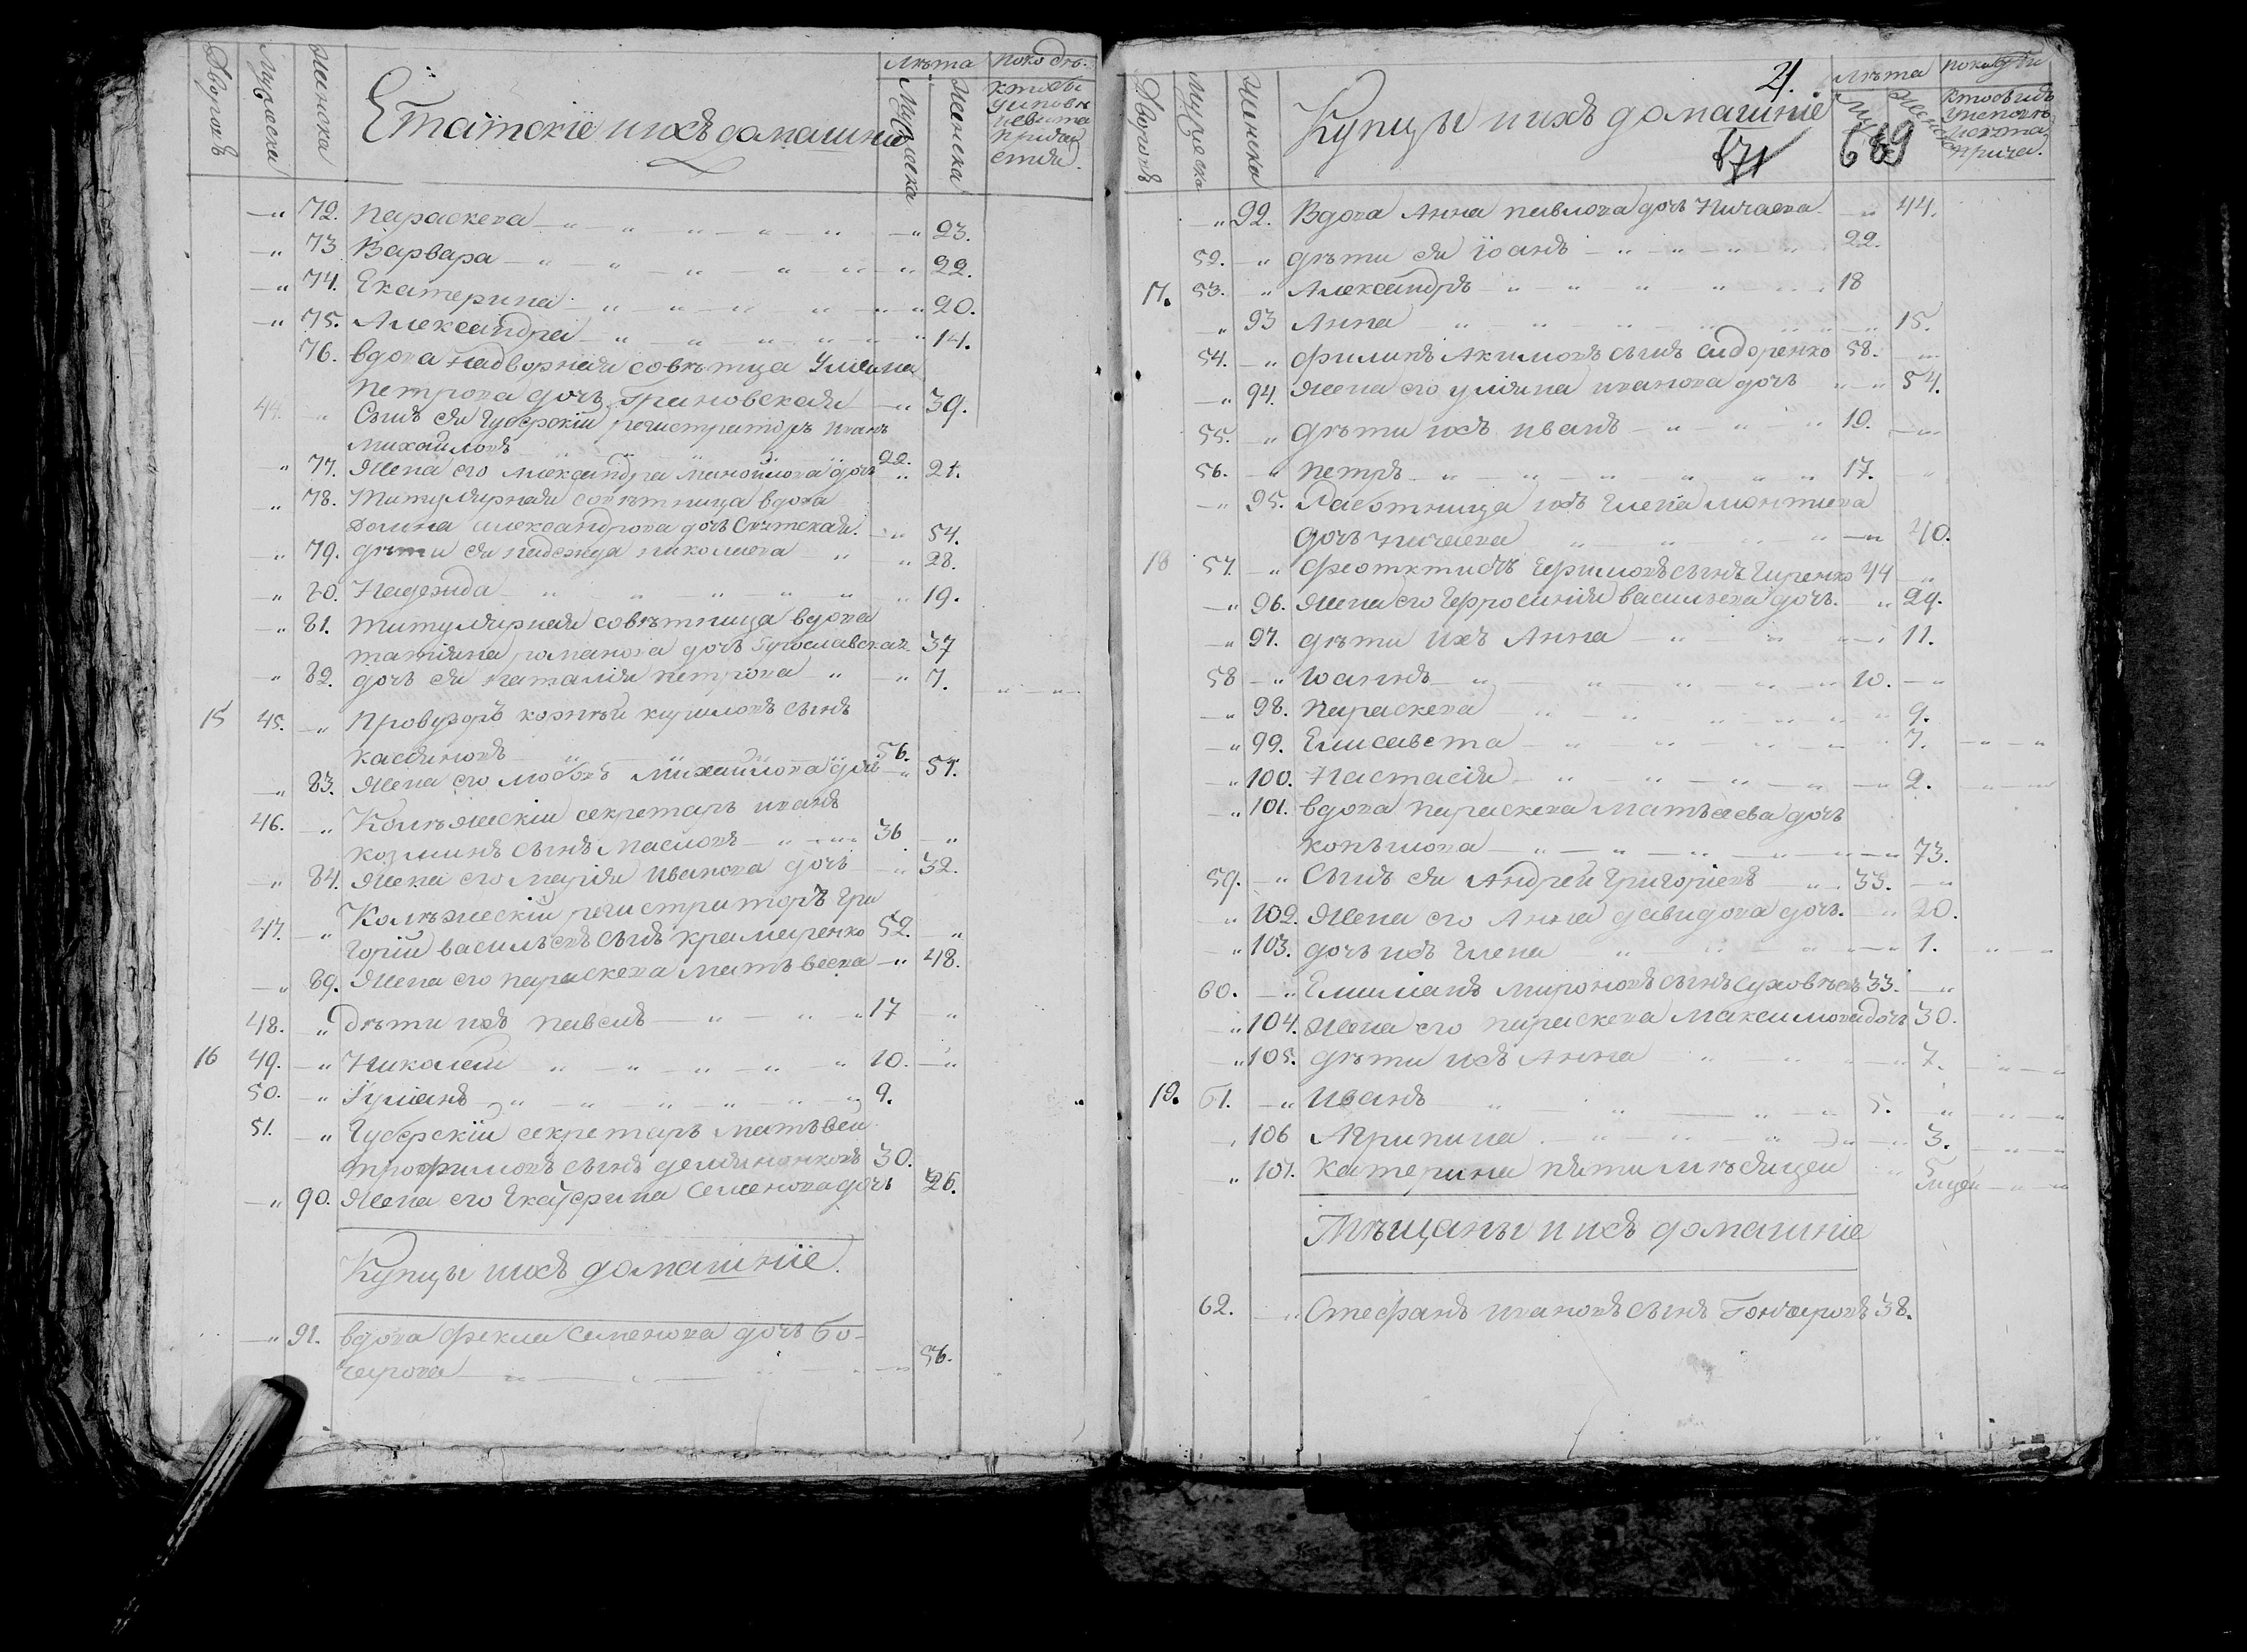 Дворовъ Мужеска Женска Статскіе и ихъ домашніе Лѣта Мужеска Женска
—" 72. Параскева —"— " 23.
—" 73 Варвара —"— " 22.
—" 74. Екатерина —"— " 20.
—" 75. Александра —"— " 14.
76. вдова надворная совѣтница Уліяна
Петрова дочь Грановская —" 39.
44. " Сынъ ея Губерскій регистраторъ Иванъ
Михайловъ 22.
" 77. Жена его Александра Мануйлова дочь " 21.
" 78. Титулярная совѣтница вдова
Александрова дочь —" 54.
" 79. дѣти ея надежда николаева " " 28.
—" 80. Надежда —"— " 19.
—" 81. титулярная совѣтница вдова
татіяна романова дочь 37
—" 82. дочь ея наталія петрова " —" 7. "—"
15 45. —" Провизоръ корнѣй кириловъ сынъ
касяновъ 56.
—" 83. Жена его любовь Михайлова дочь —" 51.
46. —" Колѣжескій секретарь иванъ
козминъ сынъ Масловъ —"— 36 "
—" 84. Жена его Марія Иванова дочь —" 32.
47. —" Колѣжескій регистраторъ Гри
горій васильевъ сынъ Крамаренко 52. "
—" 89. Жена его параскева матвѣева —" 48.
48. " Дѣти ихъ павелъ —"— 17 "
16 49. —" Николай —"— 10. —"
50. —" Іуліанъ —"— 9.
51. " Губерскій секретарь Матѣвей
трофимовъ сынъ демяненковъ 30.
—" 90. Жена его Екатерина Семенова дочь 26.
Купцы и ихъ домашніе.
—" 91. вдова фекла Семенова дочь Бо-
чарова —"— 56.
Дворовъ Мужеска Женска Купцы и ихъ домашніе 21. 671 689 Лѣта
—" 92. Вдова Анна павлова дочь Ничаева —" 44.
52. —" дѣти ея іоанъ —"— 22.
17. 53. " Александръ —"— 18
—" 93 Анна —"— 15.
54. —" Филипъ Акимовъ сынъ Сидоренко 58. —"
—" 94. Жена его уліяна иванова дочь "—" 54.
55. —" Дѣти ихъ иванъ —"— 19. —"
56. —" петръ —"— 17. "
—" 95. Работница ихъ Елена леонтиева
дочь ничаева —" 40.
18 57. —" Феоктистъ Ефимовъ сынъ Гиренко 44 —"
—" 96. Жена его Ефросинія васильева дочь. —" 29.
—" 97. дѣти ихъ Анна " 11.
58 —" Іоаннъ —"— 10. —"
—" 98. Параскева —"— 9.
—" 99. Елисавета —"— 7. —"—"
—" 100. Настасія —"— 2. —"—"
—" 101. вдова параскева Матвѣева дочь
копылова —"— 73.
59. —" Сынъ ея Андрей Григоріевъ —" 33. —"
" 102. Жена его Анна давидова дочь. —" 20.
—" 103. дочь ихъ Елена —"— 1. "—"
60. —" Емиліанъ мироновъ сынъ 33. —"
—" 104. Жена его параскева Максимова дочь 30.
—" 105. дѣти ихъ Анна " —" 7. —"—"
19. 61. —" Иванъ —"— 5. " —"—"
" 106 Агрипина —"— 3. —"—"
" 107. Катерина пяти мѣсяцей 5 мцей —"—"
Мѣщаны и ихъ домашніе
62. —" Стефанъ ивановъ сынъ Гончаровъ 38.